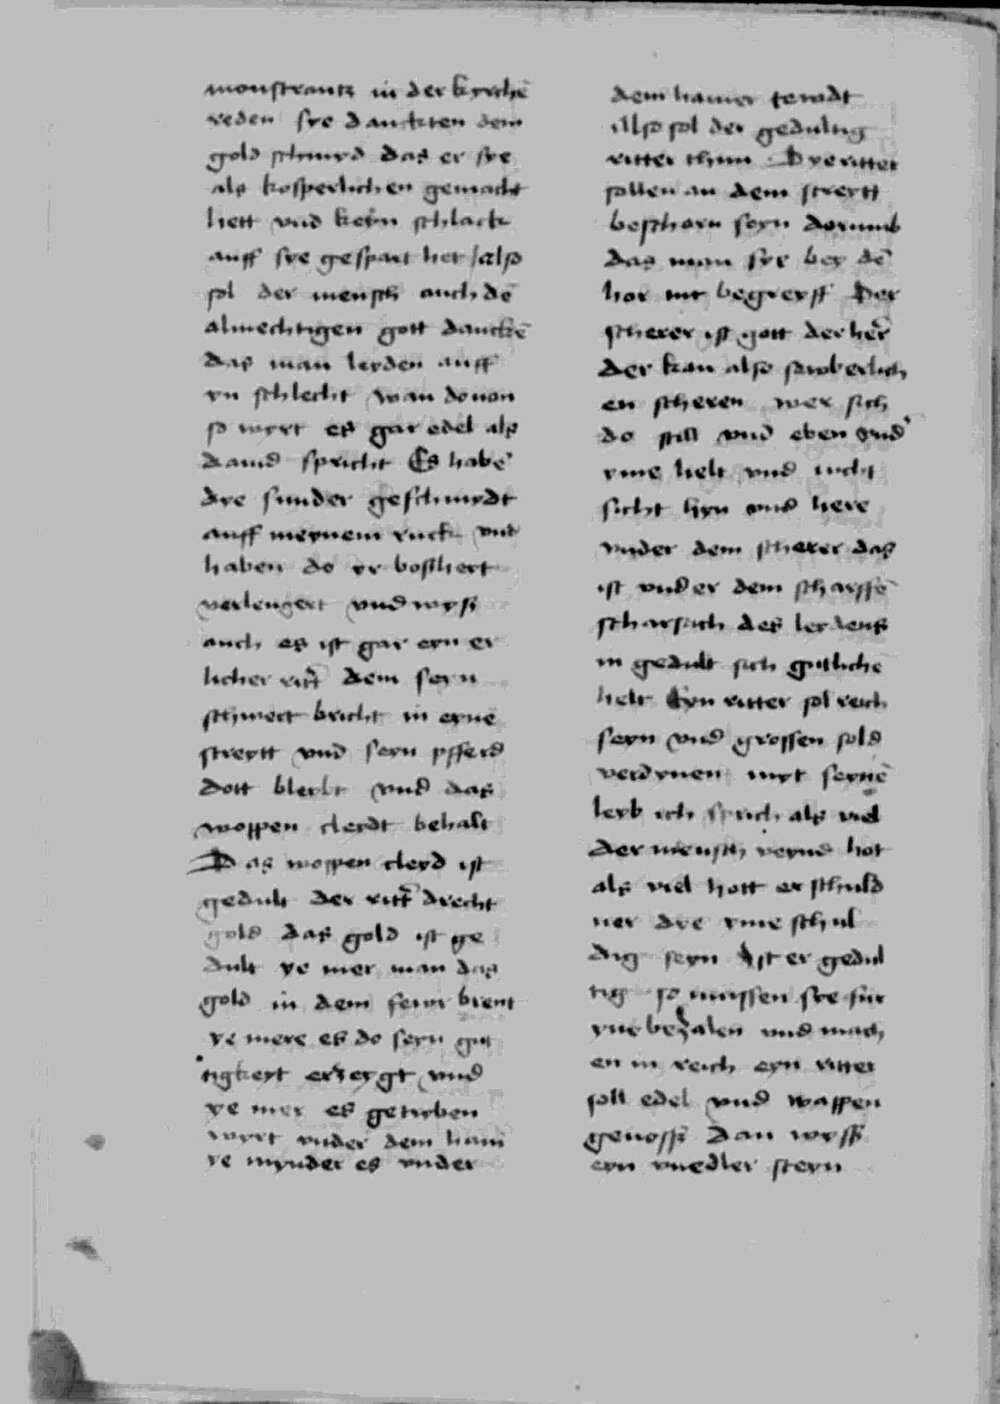 monstrantz in der kyrchē
reden sye danckten dem
gold schmyd das er sye
als kosperlichen gemacht
hett vnd keyn schlack
auff sye gespart het also
sol der mensch auch dē
almechtigen gott danckē
das man leyden auff
yn schlecht wan do von
so wyrt es gar edel als
dauid spricht Es habē
dye sunder geschmydt
auff meynem ruck vnd
haben do yr bosthert
verlengert vnd wyss
auch es ist gar eyn er
licher ritt̄ dem seyn
schwert bricht in eynē
streytt vnd seyn pfferd
dott bleybt vnd das
woppen cleydt behalt
Das woppen cleyd ist
gedult der ritt̄ drecht
gold das gold ist ge
dult ye mer man das
gold in dem fewr brent
ye mere es do seyn gut
tigkeyt erzeygt vnd
ye mer es getryben
wyrt vnder dem ham̄
ye mynder es vnder
dem hamer
Also sol der gedultig
ritter thun Dye ritter
sollen an dem streytt
beschorn seyn dorumb
das man sye bey dē
hor nit begreyff Der
scherer ist gott der her̄
der kan also sewberlich
en scheren wer sich
do still vnd eben vnd
yme helt vnd nicht
sicht hyn vnd here
vnder dem scherer das
ist vnder dem scharffē
scharsach des leydens
in gedult sich gutlichē
helt Eyn ritter sol reich
seyn vnd grossen sold
verdynen myt seynē
leyb ich sprich als viel
der mensch veynd hot
als viel hott er schuld
ner dye yme schul
dig seyn Ist er gedul
tig so mussen sye fur
yne bezalen vnd mach
en in reich eyn ritter
soll edel vnd wappen
genoss dan wyss
eyn vnedler steyn